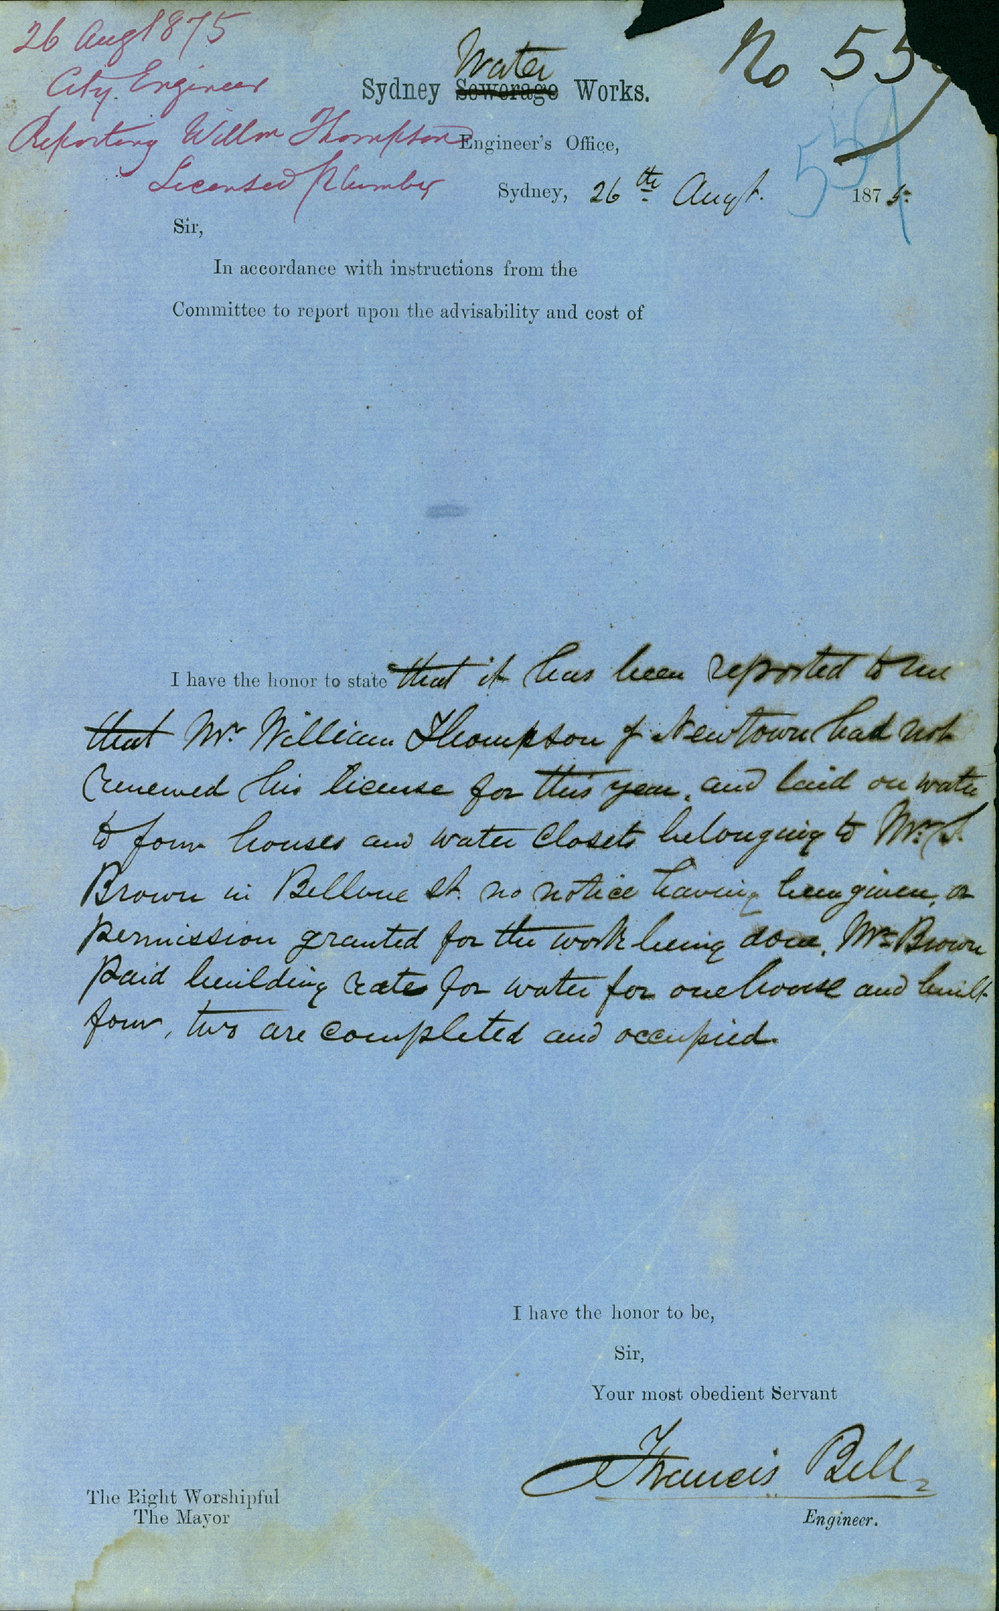 26 Aug 1875
City Engineer
Reporting Willm Thompson
Licensed Plumber
No 559
559
Water
Sydney Sewerage Works.
Engineer's Office,
Sydney, 26th Augt. 1875.
Sir,
In accordance with instructions from the
Committee to report upon the advisability and cost of
I have the honor to state that it has been reported to me
that Mr. William Thompson of Newtown had not
renewed his license for this year, and laid on water
to four houses and water closets belonging to Mr. S.
Brown in Bellvue St. no notice having been given, or
permission granted for the work being done, Mr. Brown
paid building rates for water for one house and built
four, two are completed and occupied.
I have the honor to be,
Sir,
Your most obedient Servant
Francis Bell
Engineer.
The Right Worshipful
The Mayor